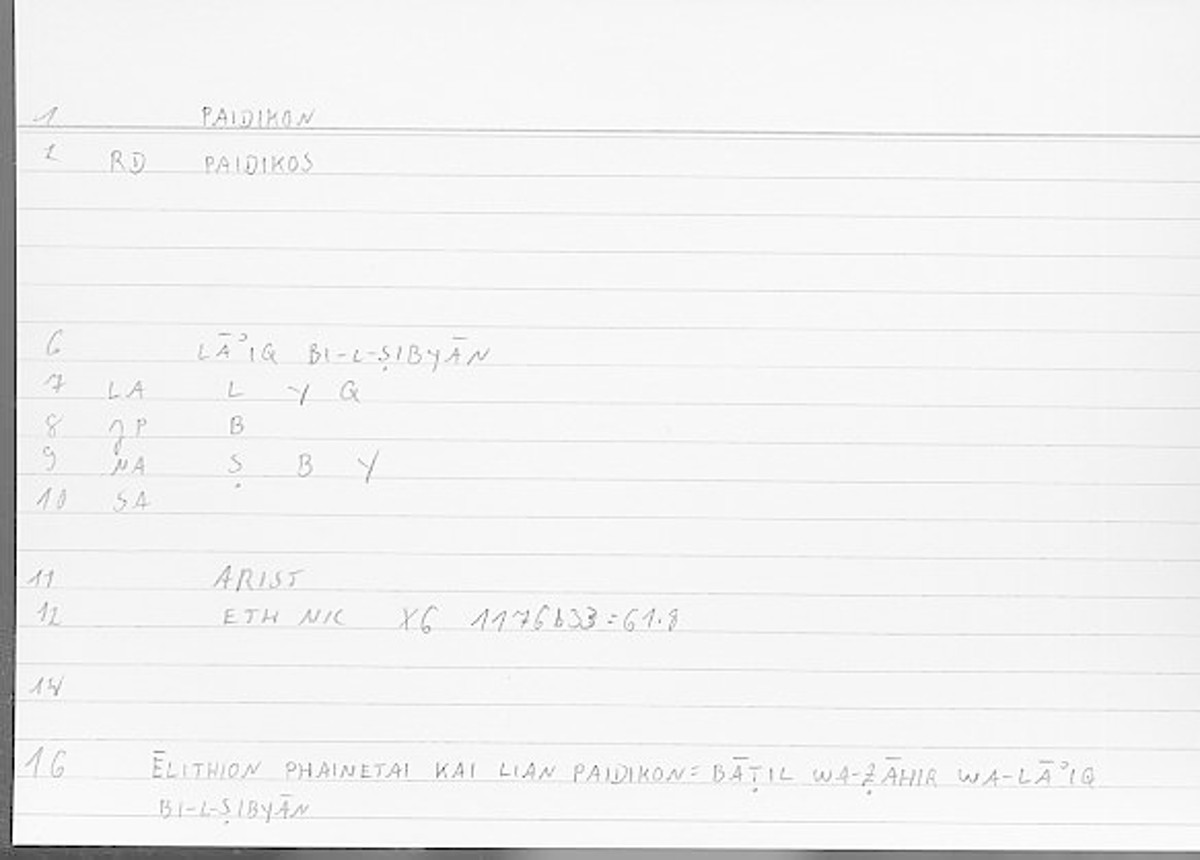 1 PAIDIKON
2 RD PAIDIKOS
6 LĀʾIQ BI-L-ṢIBYĀN
7 LA L Y Q
8 JP B
9 NA Ṣ B Y
10 SA
11 ARIST
12 ETH NIC X6 1176b33=61.8
14
16 ĒLITHION PHAINETAI KAI LIAN PAIDIKON=BĀṬIL WA-ẒĀHIR WA-LĀʾIQ
BI-L-ṢIBYĀN